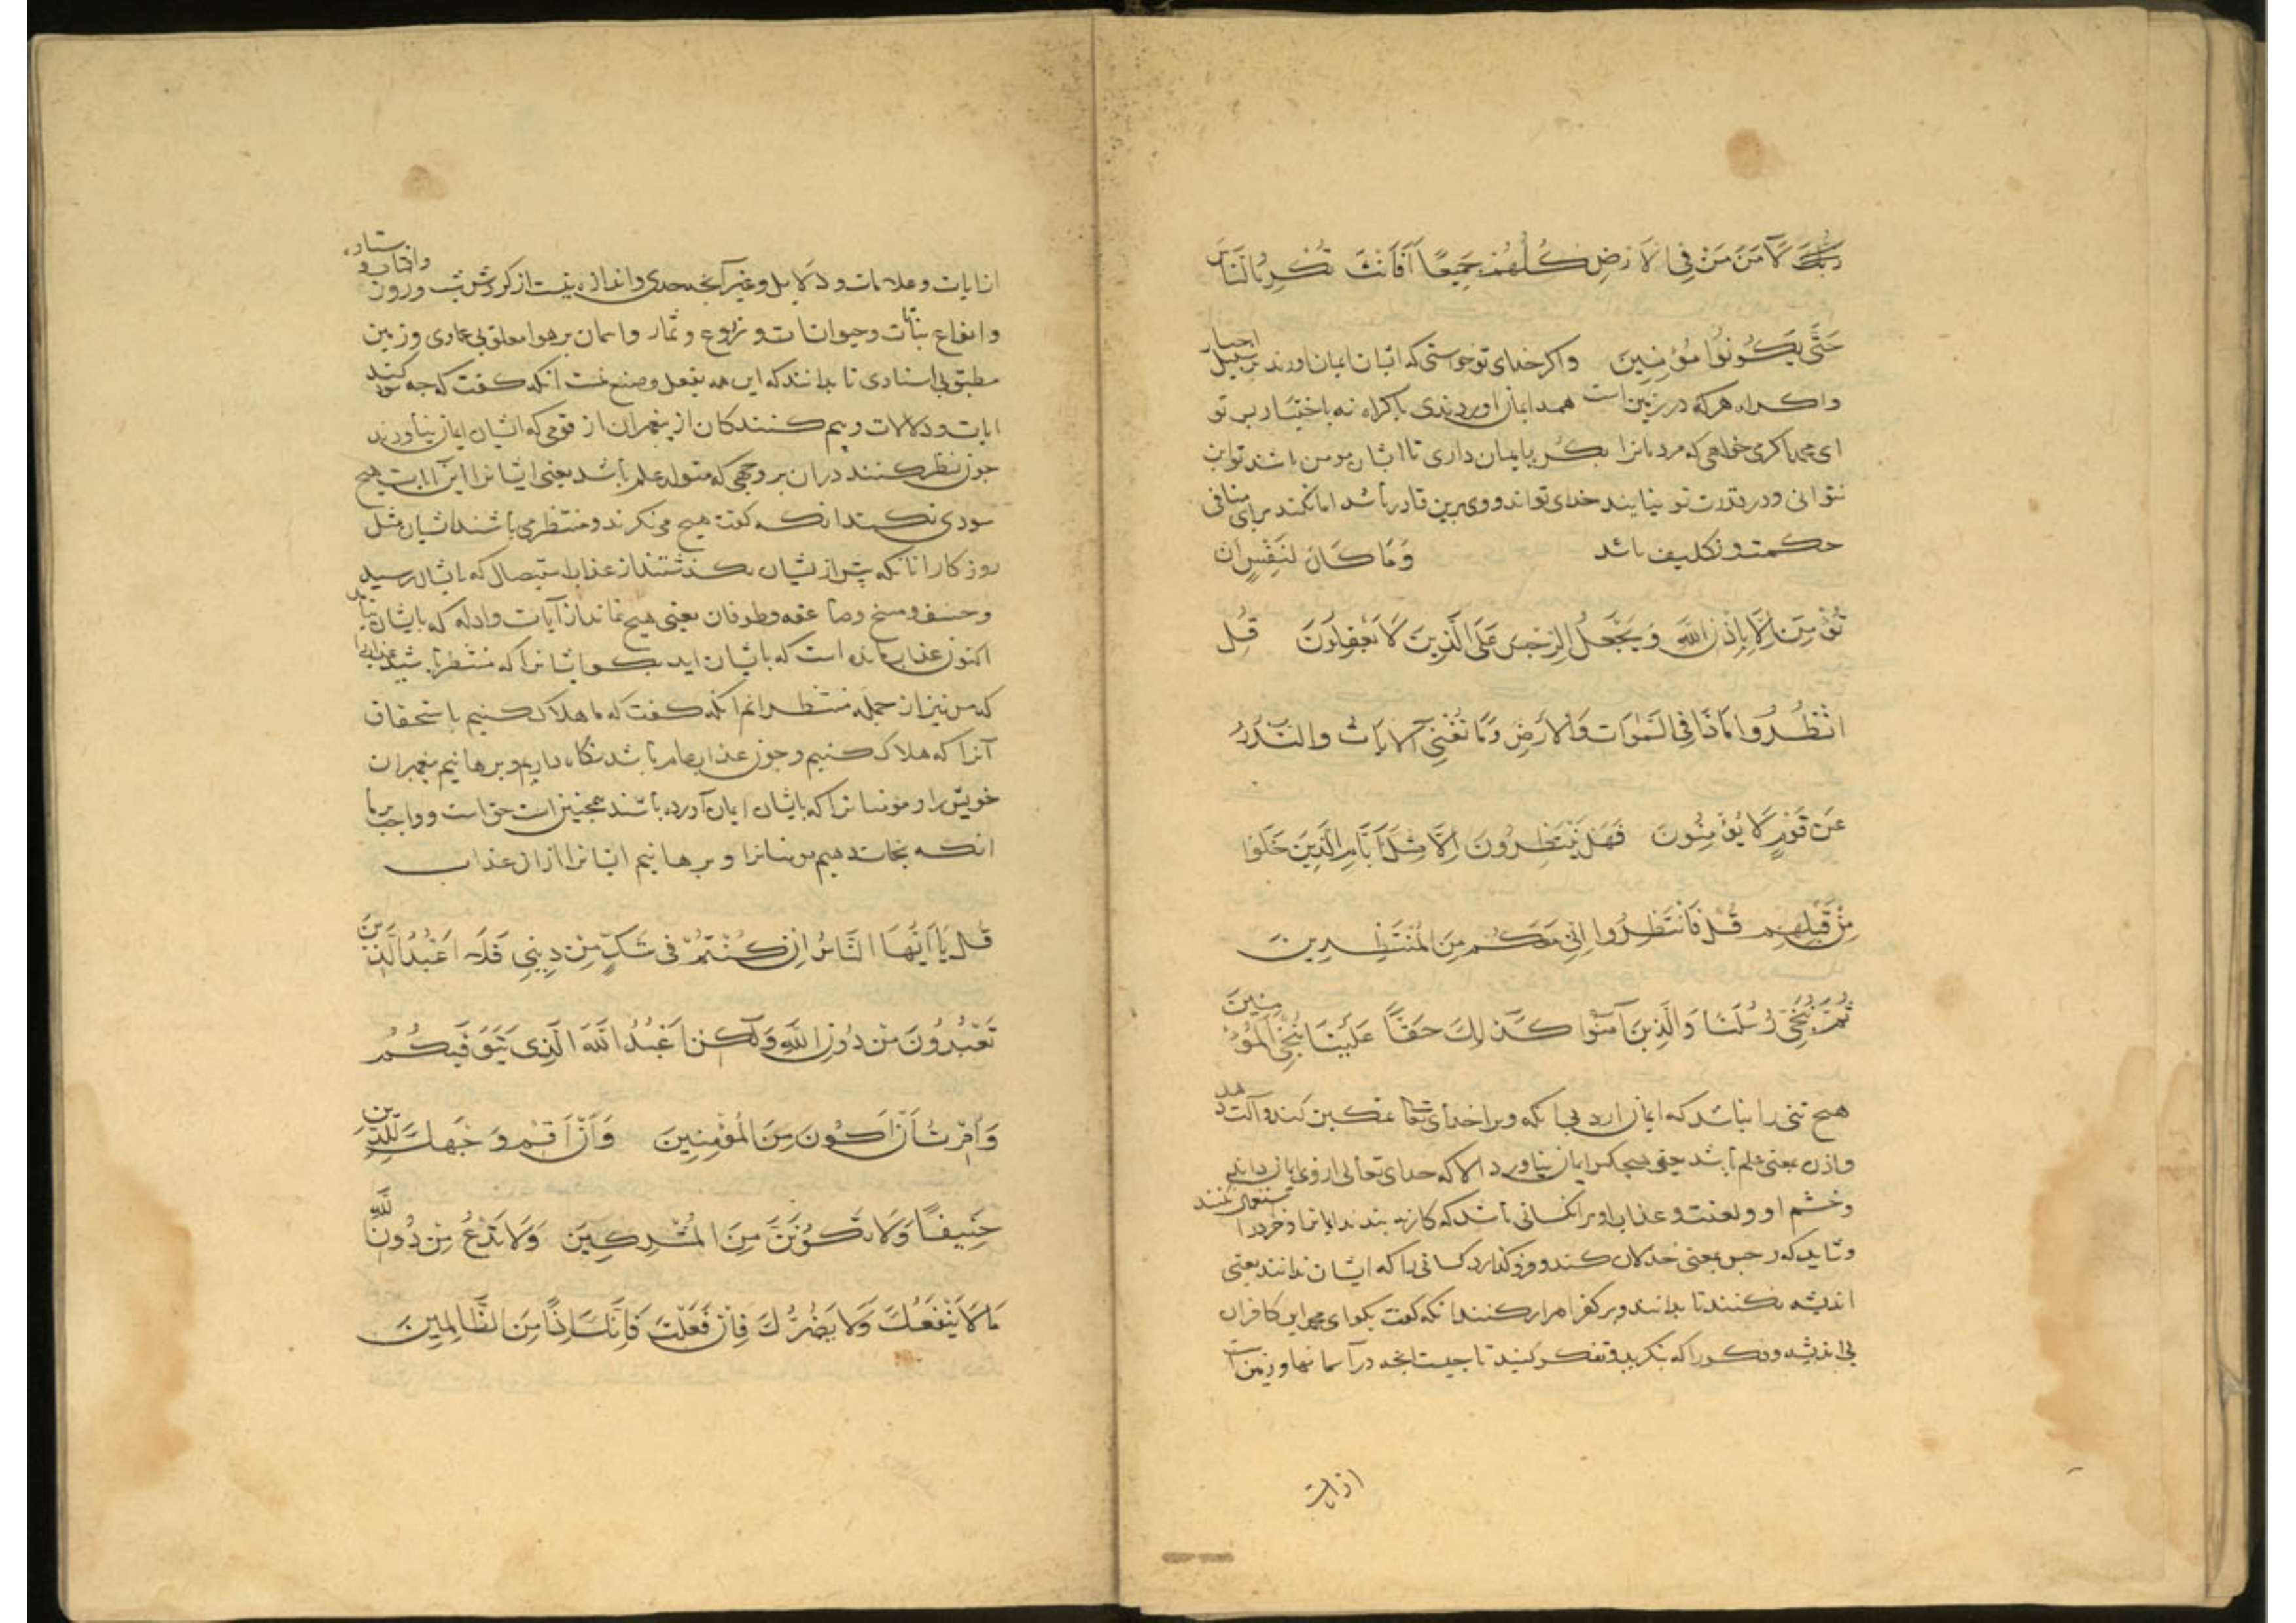 رَبُّكَ لَآمَنَ مَنْ فِي الْاَرْضِ كُلُّهُمْ جَمِيعًا اَفَاَنْتَ تُكْرِهُ النَّاسَ
حَتَّى يَكُونُوا مُؤْمِنِينَ واکر خدای تو خواستی که ایشان ایمان اورند بر سبیل اجبار
واکراه هرکه در زمین است همه ایمان اوردندی باکراه نه باختیار بس تو
ای محمد اکر می خواهی که مردمانرا بکره بایمان داری تا ایشان مومن باشند تو این
نتوانی ودر قدرت تو نیاید خدای تواند ووی برین قادر باشد اما نکند برای منافی
حکمت و تکلیف باشد وَمَا كَانَ لِنَفْسٍ اَنْ
تُؤْمِنَ اِلَّا بِاِذْنِ اللَّهِ وَيَجْعَلُ الرِّجْسَ عَلَى الَّذِينَ لَا يَعْقِلُونَ قُلِ
انْظُرُوا مَاذَا فِي السَّمٰوَاتِ وَالْاَرْضِ وَمَا تُغْنِي الْآيَاتُ وَالنُّذُرُ
عَنْ قَوْمٍ لَا يُؤْمِنُونَ فَهَلْ يَنْتَظِرُونَ اِلَّا مِثْلَ اَيَّامِ الَّذِينَ خَلَوْا
مِنْ قَبْلِهِمْ قُلْ فَانْتَظِرُوا اِنِّي مَعَكُمْ مِنَ الْمُنْتَظِرِينَ
ثُمَّ نُنَجِّي رُسُلَنَا وَالَّذِينَ آمَنُوا كَذٰلِكَ حَقًّا عَلَيْنَا نُنْجِ الْمُؤْمِنِينَ
هیچ تنی را نباشد که ایمان ارد بی انکه ویرا خدای تعالی تمکین کند والت دهد
واذن بمعنی علم باشد یعنی هیچکس ایمان نیاورد الا که خدای تعالی ازوی ایمان داند
وخشم او ولعنت وعذاب او بر انکسانی باشد که کار نه بندند ایمانرا وخرد را استعمال نکنند
وشاید که رجس بمعنی خذلان کند وفرو کذارد کسانی را که ایشان ندانند یعنی
اندیشه نکنند تا بدانند وبر کفر اصرار کنند انکه کفت بکو ای محمد این کافران
بی اندیشه وفکر را که بنکرید وتفکر کنید تا چیست انچه در آسمانها وزمین است
از ایات
از ایات وعلامات ودلایل وغیر آنچه حدی واندازه نیست از کردش شب وروز وافتاب وستاره
وانواع نبات وحیوانات وزروع وثمار واسمان بر هوا معلق بی عمادی وزمین
مطبق بی اسنادی تا بدانند که این همه بفعل وصنع انکه کفت که چه سود کند
ایات ودلالات وبیم کنندکان از پیغمبران از قومی که ایشان ایمان نیاورند
چون نظر نکنند دران بر وجهی که متولد علم باشد یعنی ایشانرا این آیات هیچ
سودی نکند انکه کفت هیچ می نکرند ومنتظر می باشند ایشان مثل
روزکار انانکه پیش از یشان بکذشتند از عذاب استیصال که بایشان رسید
وخسف ومسخ وصاعقه وطوفان یعنی هیچ نماند از آیات وادله که بایشان
اکنون عذاب مانده است که بایشان اید بکو ایشانرا که منتظر باشید عذاب را
که من نیز از جمله منتظرانم آنکه کفت که ما هلاک کنیم باستحقاق
آنرا که هلاک کنیم وچون عذاب عام باشد نکاه داریم وبرهانیم پیغمبران
خویش را ومومنانرا که بایشان ایمان آورده باشند همچنین است حق است وواجب بر ما
انکه نجات دهیم مومنانرا وبرهانیم ایشانرا ازان عذاب
قُلْ يَا اَيُّهَا النَّاسُ اِنْ كُنْتُمْ فِي شَكٍّ مِنْ دِينِي فَلَا اَعْبُدُ الَّذِينَ
تَعْبُدُونَ مِنْ دُونِ اللَّهِ وَلٰكِنْ اَعْبُدُ اللَّهَ الَّذِي يَتَوَفَّيكُمْ
وَاُمِرْتُ اَنْ اَكُونَ مِنَ الْمُؤْمِنِينَ وَاَنْ اَقِمْ وَجْهَكَ لِلدِّينِ
حَنِيفًا وَلَا تَكُونَنَّ مِنَ الْمُشْرِكِينَ وَلَا تَدْعُ مِنْ دُونِ اللَّهِ
مَا لَا يَنْفَعُكَ وَلَا يَضُرُّكَ فَاِنْ فَعَلْتَ فَاِنَّكَ اِذًا مِنَ الظَّالِمِينَ